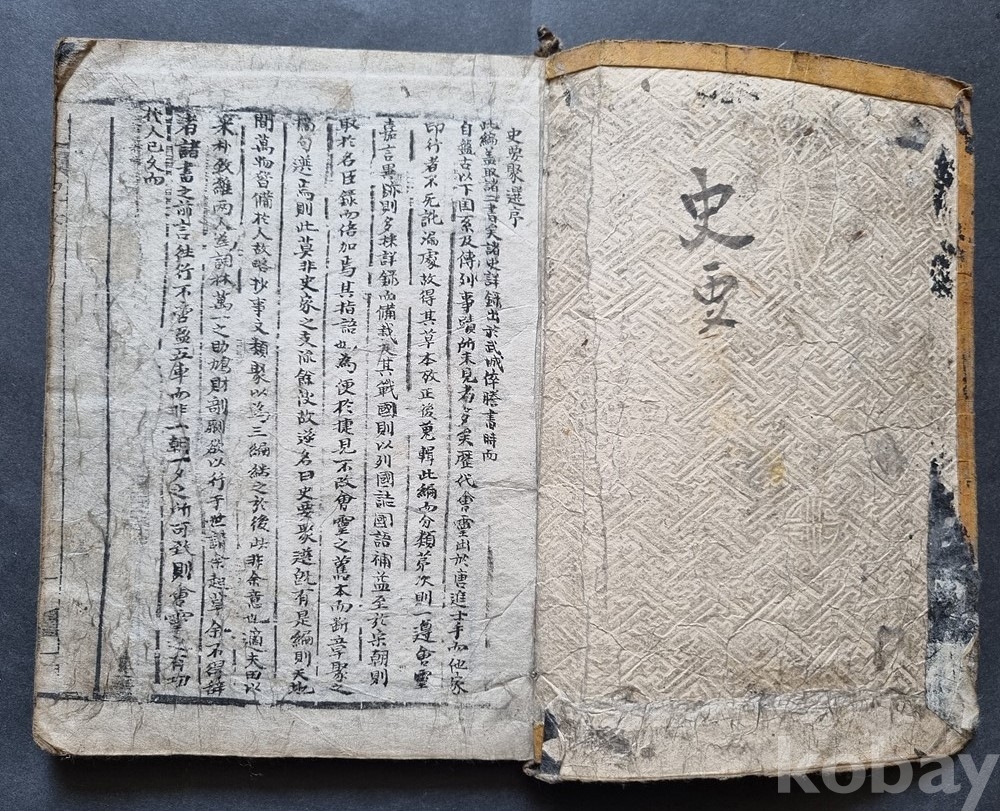 史要
史要聚選序
此編蓋取諸二書矣諸史詳錄出於武城倅謄書時而
自盤古以下國系及傳列事蹟所未見者多矣歷代會靈出於唐進士手而他家
印行者不无訛漏處故得其草本攷正後蒐輯此編而分類第次則一遵會靈
嘉言異跡則多採詳錄而備載及其戰國則以列國誌國語補益至於宋朝則
取於名臣錄而倍加焉其指語也為便於捷見不改會靈之舊本而斷章聚之
摘句選焉則此莫非史家之支流餘波故遂名曰史要聚選旣有是編則天地
間萬物皆備於人故略抄事文類聚以爲三編繼之於後此非余意也適夫田以
采朴致維兩人爲詞林萬一之助鳩財剞劂欲以行于世請余起草余不得辭
者諸書之前言往行不啻盈五庫而非一朝一夕之所可致則會靈之有功
代人已久而
kobay